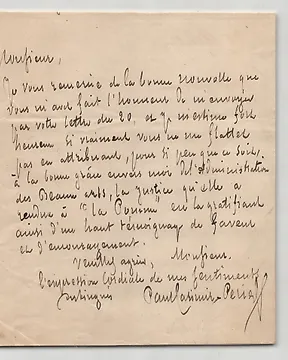 Monsieur,
Je vous remercie de la bonne nouvelle que
vous m'avez fait l'honneur de m'envoyer
par votre lettre du 20, et je m'estime fort
heureux si vraiment vous ne me flattez
pas en attribuant, si peu que ce soit,
à la bonne grâce envers moi de l'Administration
des Beaux arts, la justice qu'elle a
rendue à "la" en la gratifiant
ainsi d'un haut témoignage de faveur
et d'encouragement.
Veuillez agréer, Monsieur,
l'expression cordiale de mes sentiments
distingués
Paul Casimir-Perier